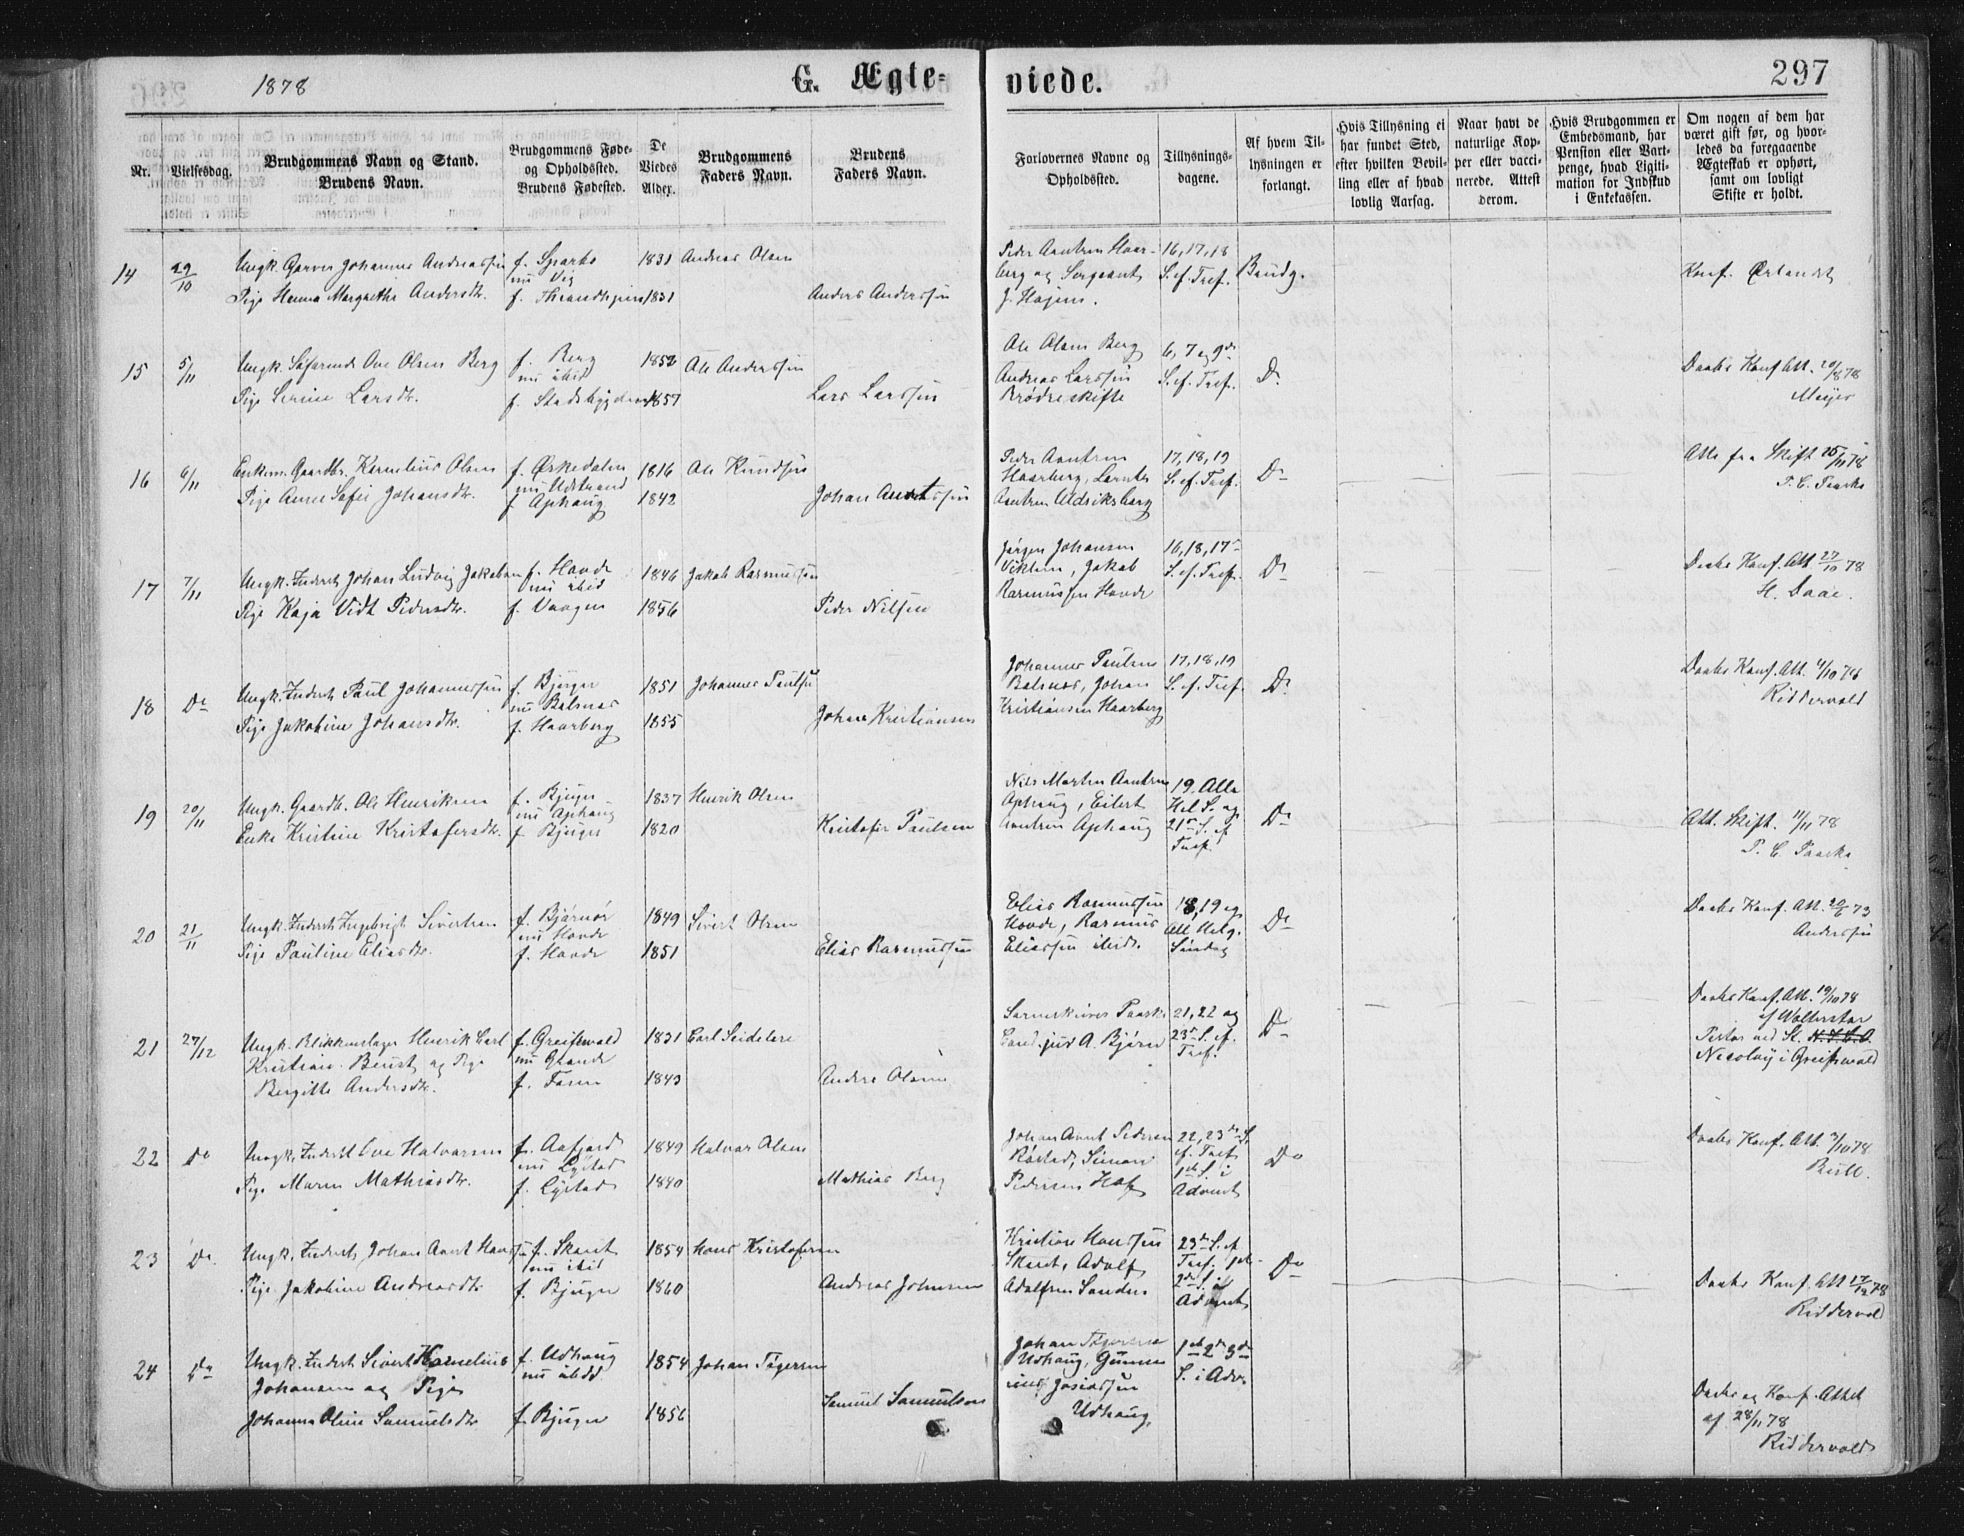 1878
G. Ægte-
viede.
297
Nr.
Vielsesdag.
Brudgommens Navn og Stand.
Brudens Navn.
Brudgommens Føde-
og Opholdssted.
Brudens Fødested.
De
Viedes
Alder.
Brudgommens
Faders Navn.
Brudens
Faders Navn.
Forlovernes Navne og
Opholdssted.
Tillysnings-
dagene.
Af hvem Til-
lysningen er
forlangt.
Hvis Tillysning ei
har fundet Sted,
efter hvilken Bevil-
ling eller af hvad
lovlig Aarsag.
Naar havt de
naturlige Kop-
per eller vacci-
nerede. Attest
derom.
Hvis Brudgommen er
Embedsmand, har
Pension eller Vart-
penge, hvad Ligiti-
mation for Indskud
i Enkekassen.
Om nogen af dem har
været gift før, og hvor-
ledes da foregaaende
Ægteskab er ophørt,
samt om lovligt
Skifte er holdt.
14
29/10
Ungk. Garver Johannes Andreassen
Pige Hanna Margrethe Andersdr.
f. Sparbo
nu Vig
f. Throndhjem
1831
1831
Andreas Olsen
Anders Anderssen
Peder Aantren Haar-
berg og Sergeant
J. Hojem.
16, 17, 18
S. ef. Tref.
Brudg.
Konf. Ørlandet
15
5/11
Ungk. Søfarende Ove Olsen Berg
Pige Serine Larsdr.
f. Berg
nu ibid
f. Stadsbygden
1852
1857
Ole Anderssen
Lars Larssen
Ole Olsen Berg
Andreas Larssen
Brødreskifte
6, 7 og 9de
S. ef. Tref.
Do
Daabs Konf. Att. 20/8 78
Meyer
16
6/11
Enkem. Gaardbr. Kornelius Olsen
Pige Anne Sofie Johansdr.
f. Ørkedalen
nu Udstrand
f. Aphaug
1816
1842
Ole Knudsen
Johan Arntssen
Peder Aantren
Haarberg, Lorntes
Aantren Uldriksberg
17, 18, 19
S. ef. Tref.
Do
Att. fra Skift. 25/11 78
P. C. Paaske
17
7/11
Ungk. Inderst Johan Ludvig Jakobsen
Pige Kaja Vidt Pedersdr.
f. Hovde
nu ibid
f. Vaagen
1846
1856
Jakob Rasmussen
Peder Nilsen
Jørgen Johansen
Viklem, Jakob
Rasmussen Hovde
16, 18, 17
S. ef. Tref.
Do
Daabs Konf. Att. 27/10 78
H. Daae.
18
Do
Ungk. Inderst Paul Johannessen
Pige Jakobine Johansdr.
f. Bjugn
nu Balsnes
f. Haarberg
1851
1855
Johannes Paulsen
Johan Kristiansen
Johannes Paulsen
Balsnes, Johan
Kristiansen Haarberg
17, 18, 19
S. ef. Tref.
Do
Daabs Konf. Att. 4/10 78
Riddervold
19
20/11
Ungk. Gaardb. Ole Henriksen
Enke Kristine Kristofersdr.
f. Bjugn
nu Aphaug
f. Bjugn
1837
1820
Henrik Olsen
Kristofer Paulsen
Nils Morten Aantren
Aphaug, Eilert
Aantren Aphaug
19. Alle
Hel. S. og
21de S. ef
Tref.
Do
Att. Skift. 11/11 78
P. C. Paaske
20
21/11
Ungk. Inderst Ingebrigt Sivertsen
Pige Pauline Eliasdr.
f. Bjørnør
nu Hovde
f. Hovde
1849
1851
Sivert Olsen
Elias Rasmussen
Elias Rasmussen
Hovde, Rasmus
Eliassen ibid.
18, 19 og
All Helg.
Søndag
Do
Daabs Konf. Att. 20/6 73
Anderssen
21
27/12
Ungk. Blikkenslager Henrik Carl
Kristian Beust og Pige
Bergitte Andersdr.
f. Greifswald
nu Grande
f. Fosen
1831
1843
Carl Seideler
Anders Olsen
Paaske
Cand. jur A. Bjørn
21, 22 og
23de S. ef.
Tref.
Do
Daabs Konf. Att. 19/10 78
af Woltersdor
Pastor ved St.
Nicolay i Greifswald
22
Do
Ungk. Inderst Ove Halvorsen
Pige Maren Mathiasdr.
f. Aafjord
nu Lystad
f. Lystad
1849
1840
Halvor Olsen
Mathias Berg
Johan Arnt Pedersen
Røstad, Simon
Pedersen Hof
22, 23de S.
ef. Tref
1ste S. i
Advent
Do
Daabs Konf. Att. 3/10 78
Bull.
23
Do
Ungk. Inderst Johan Arnt Hanssen
Pige Jakobine Andreasdr.
f. Skaret
nu ibid
f. Bjugn
1854
1860
Hans Kristofersen
Andreas Johnsen
Kristian Hanssen
Skaret, Adolf
Adolfsen Sanden
23de S. ef
Tref. 1ste
2den S. i
Advent
Do
Daabs Konf. Att 17/12 78
Riddervold
24
Do
Ungk. Inderst Sivert Kornelius
Johansen og Pige
Johanna Oline Samuelsdr.
f. Udhaug
nu ibid
f. Bjugn
1854
1856
Johan Tøgersen
Samuel Samuelsen
Johan Tøgersen
Udhaug, Gunne
rius Josiassen
Udhaug,
1ste 2de 3de
S. i Adv.
Daabs og Konf. Attest
af 28/11 78
Riddervold